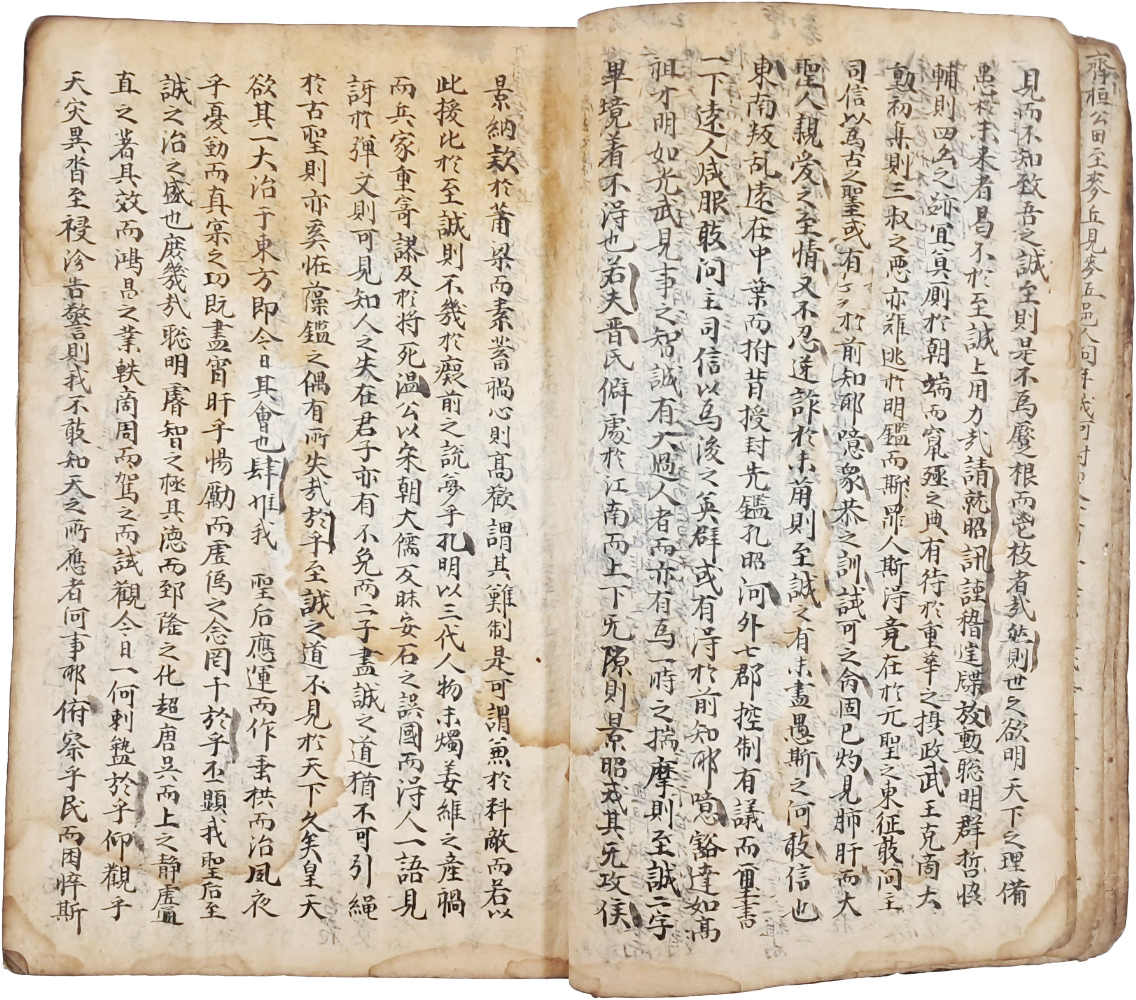 齊桓公田至麥丘見麥丘邑人問年幾何對
見而不知致吾之誠至則是不爲蠹之根而蠹枝者哉然則世之欲明天下之理備
愚於未來者曷不於至誠上用力哉請就昭訊謹稽崖牒放勳聰明群哲恊
輔則四幺之跡宜眞厠於朝端而竄殛之典有待於重華之攝政武王克商大
勳初集則三叔之惡亦難逃於明鑑而斯罪人斯淂竟在於元聖之東征敢問主
司信以爲古之聖或有於前知耶噫衆恭之訓試可之侖固已灼見肺肝而大
聖人親愛之至情又不忍逆詐於未萠則至誠之有未盡愚斯之何敢信也
東南叛乱遠在中葉而拊背授封先鑑孔昭河外七郡控制有議而璽書
一下逺人咸服敢問主司信以爲後之英辟或有淂於前知耶噫豁達如高
祖才明如光武見事之智誠有大過人者而亦有爲一時之揣摩則至誠二字
畢境着不淂也若夫晋氏僻處於江南而上下旡隙則景昭戒其旡攻侯
景納款於莆梁而素蓄禍心則高歡謂其難制是可謂兼於料敵而若以
此援比於至誠則不幾於癡前之說夢乎孔明以三代人物未燭姜維之產禍
而兵家重寄謬及於將死温公以宋朝大儒反昧安石之誤國而淂人一語見
訝於彈文則可見知人之失在君子亦有不免而二子盡誠之道猶不可引繩
於古聖則亦奚恠藻鑑之偶有所失哉於乎至誠之道不見於天下久矣皇天
欲其一大治于東方即今日其會也肆惟我 聖后應運而作垂拱而治夙夜
乎憂動而真宲之功既盡宵旰乎惕勵而虛僞之念罔干於乎丕顯我聖后至
誠之治之盛也庶幾哉聰明睿智之極其德而郅隆之化超唐吳而上之静虛
直之著其效而鴻昌之業軼商周而駕之而試觀今日一何剌盭於乎仰觀乎
天灾異沓至祲沴告警則我不敢知天之所應者何事耶俯察乎民而困悴斯